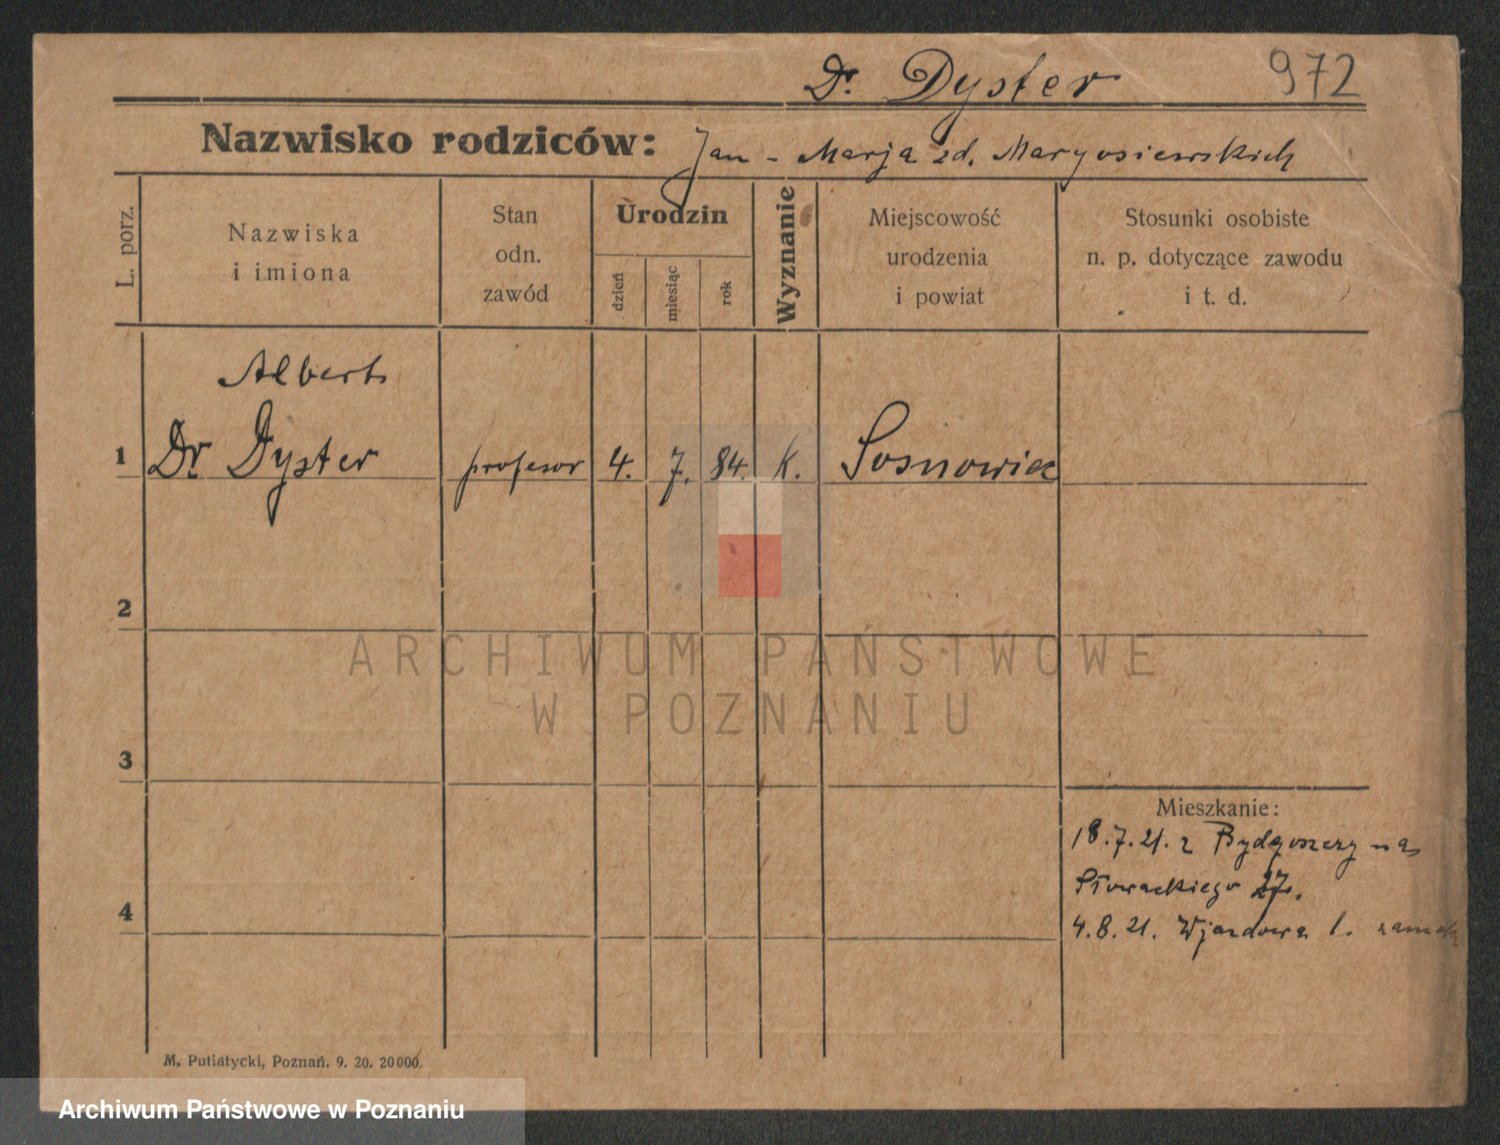 Dr. Dyster
972
Nazwisko rodziców: Jan - Marja zd. Maryosiewskich
L. porz.
Nazwiska
i imiona
Stan
odn.
zawód
Urodzin
dzień
miesiąc
rok
Wyznanie
Miejscowość
urodzenia
i powiat
Stosunki osobiste
n. p. dotyczące zawodu
i t. d.
Albert
1 Dr Dyster profesor 4. 7. 84. k. Sosnowice
2
3
4
Mieszkanie:
18.7.21. z Bydgoszczy na
Słowackiego 27.
4.8.21. Wjazdowa 1.
M. Putiatycki, Poznań. 9. 20. 20000.
ARCHIWUM PAŃSTWOWE
W POZNANIU
Archiwum Państwowe w Poznaniu